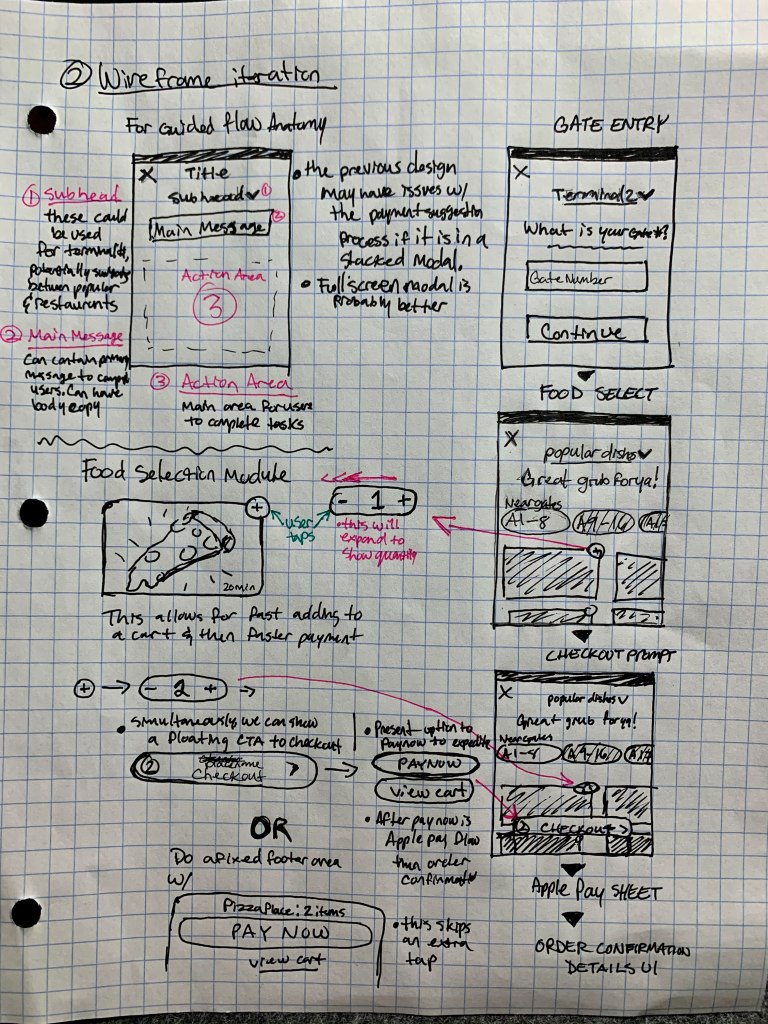 ② Wireframe iteration
For Guided flow Anatomy
X Title
Subhead ①
Main Message ②
Action Area
③
① Subhead
these could
be used
for terminals,
potentially
between popular
& restaurants
② Main Message
Can contain primary
message to
users. Can have
body copy
③ Action Area
Main area for users
to complete tasks
• the previous design
may have issues w/
the payment suggestion
process if it is in a
stacked modal.
• Full screen modal is
probably better
GATE ENTRY
X
Terminal 2
What is your Gate#?
Gate Number
Continue
FOOD SELECT
X
popular dishes
Great grub for ya!
Near gates
A1-8 A9-16
CHECKOUT PROMPT
X
popular dishes
Great grub for ya!
Near gates
A1-8 A9/16
② CHECKOUT >
Apple Pay SHEET
ORDER CONFIRMATION
DETAILS UI
Food Selection Module
+
20 min
user
taps
- 1 +
• this will
expand to
show quantity
This allows for fast adding to
a cart & then faster payment
+ → - 2 + →
• simultaneously we can show
a floating CTA to checkout
② Checkout >
• Present option to
Pay now to expedite
PAY NOW
View cart
• After pay now is
Apple pay
then order
confirmation
OR
Do a fixed footer area
w/
Pizza Place: 2 items
PAY NOW
view cart
• this skips
an extra
tap